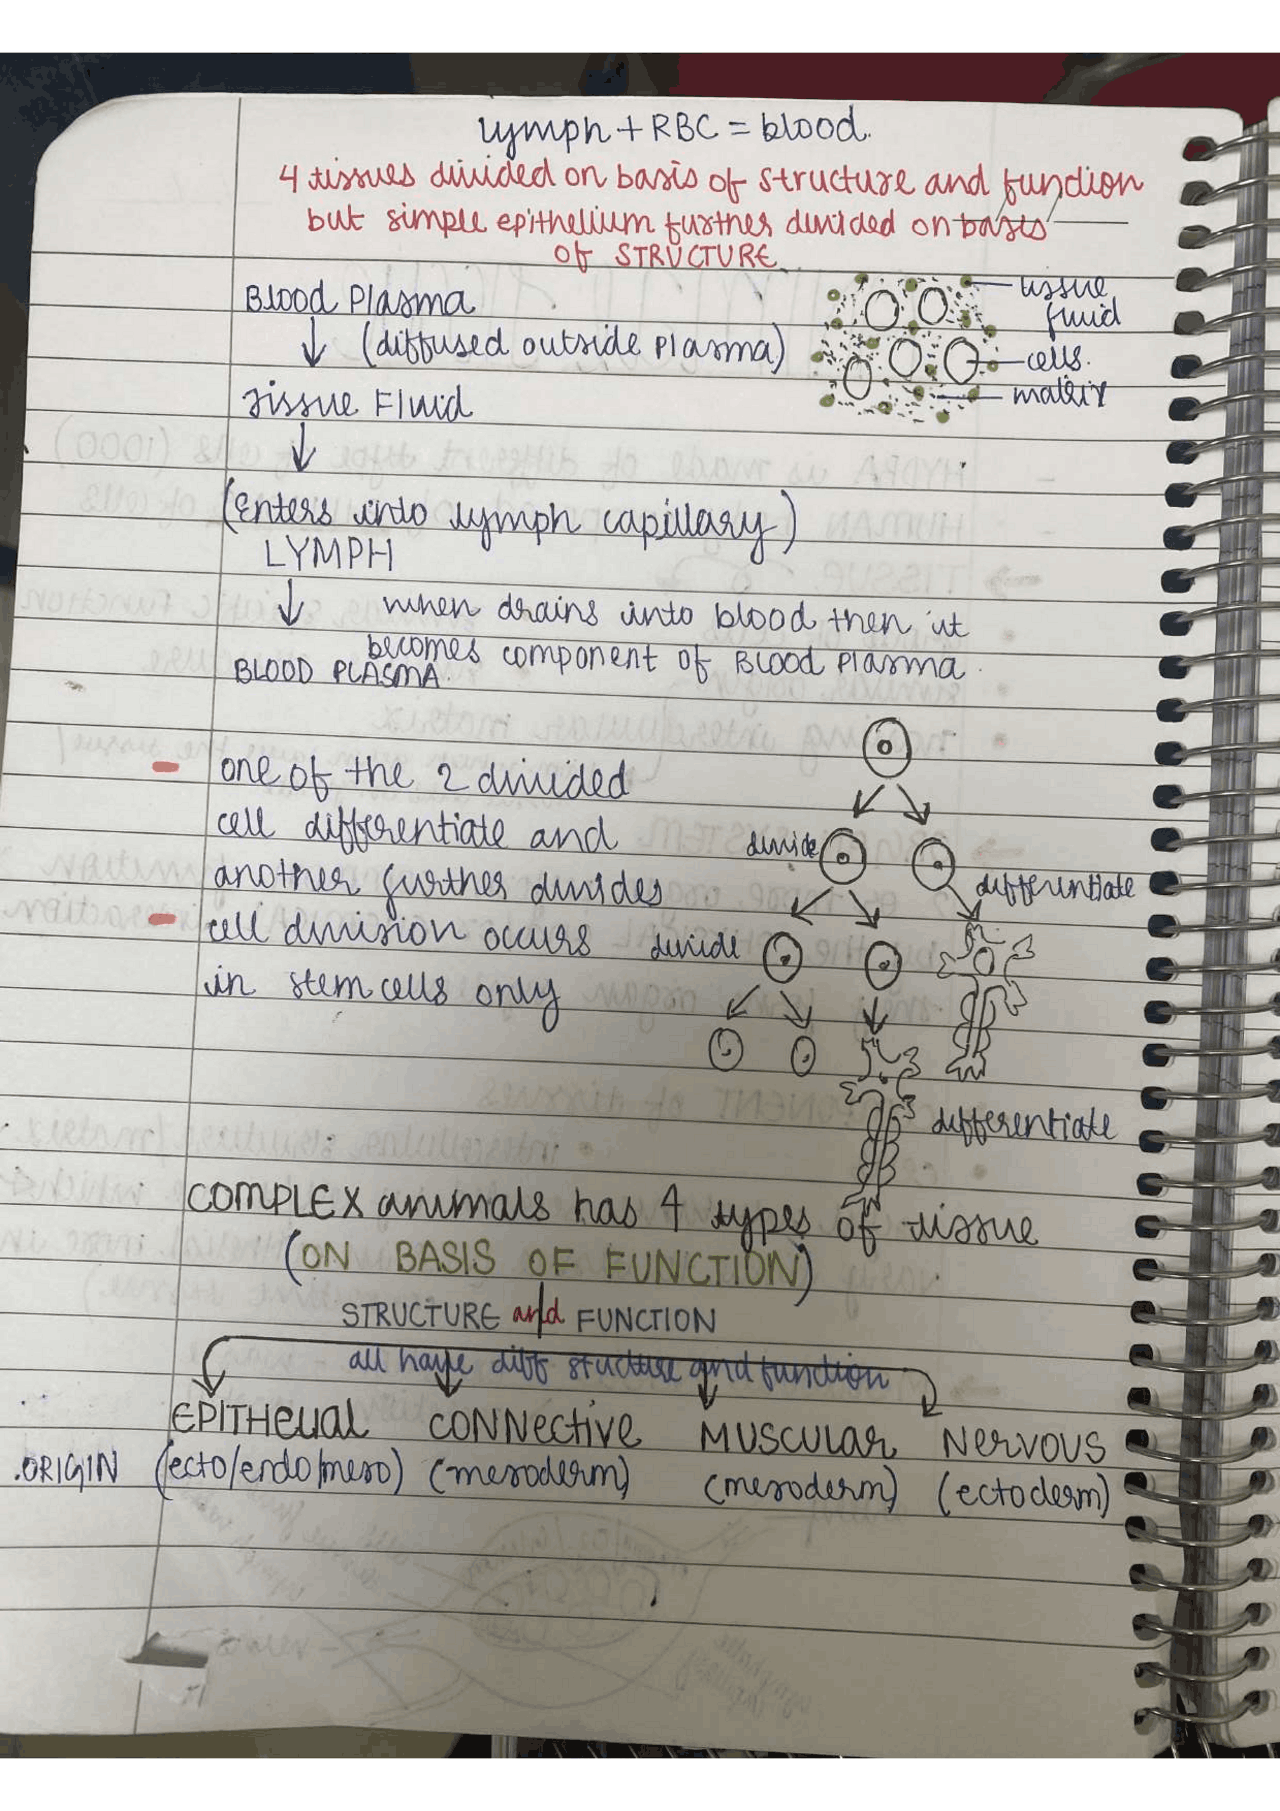 lymph + RBC = blood.
4 tissues divided on basis of structure and function
but simple epithelium further divided on basis
of STRUCTURE
Blood Plasma
(diffused outside plasma)
Tissue Fluid
tissue
fluid
cells.
matrix
(Enters into lymph capillary)
LYMPH
when drains into blood then it
becomes component of Blood Plasma.
BLOOD PLASMA.
- one of the 2 divided
cell differentiate and
another further divides
- cell division occurs
in stem cells only
divide
differentiate
divide
differentiate
COMPLEX animals has 4 types of tissue
(ON BASIS OF FUNCTION)
STRUCTURE and FUNCTION
all have diff stucture and function
EPITHElial CONNective MUSCUlar NERVOUS
.ORIGIN (ecto/endo/meso) (mesoderm) (mesoderm) (ectoderm)